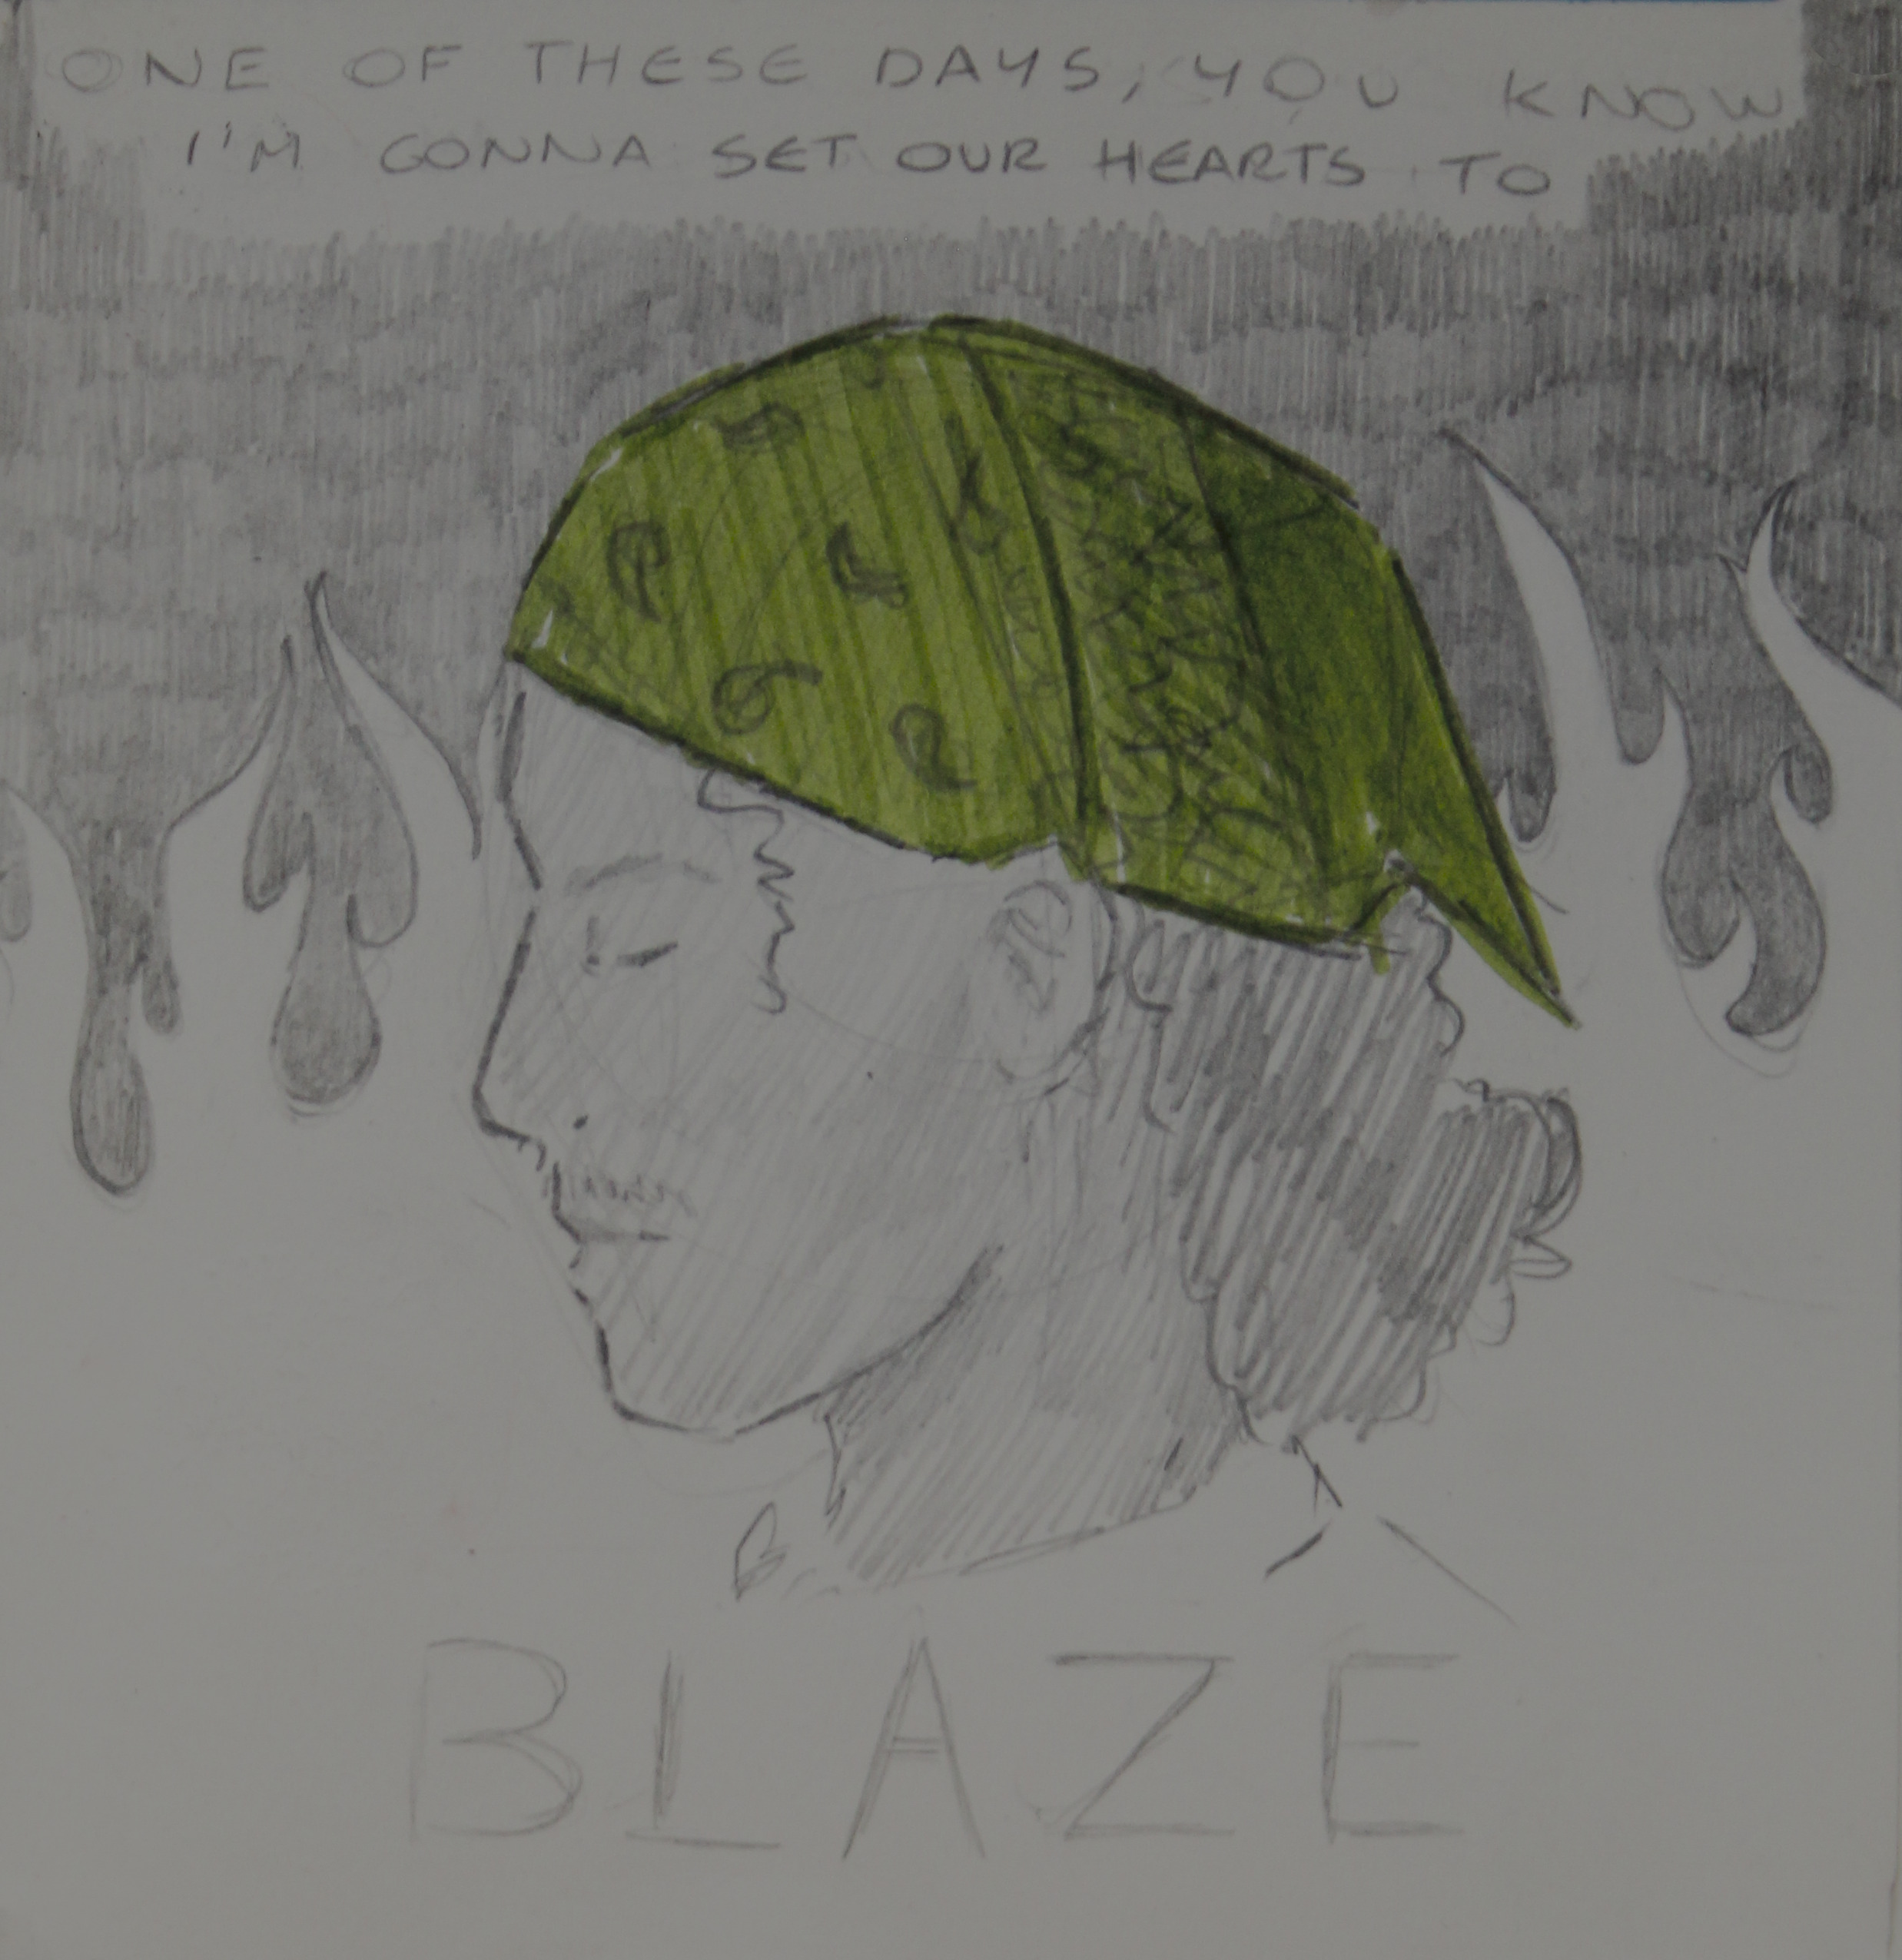 ONE OF THESE DAYS, YOU KNOW
I'M GONNA SET OUR HEARTS TO
BLAZE